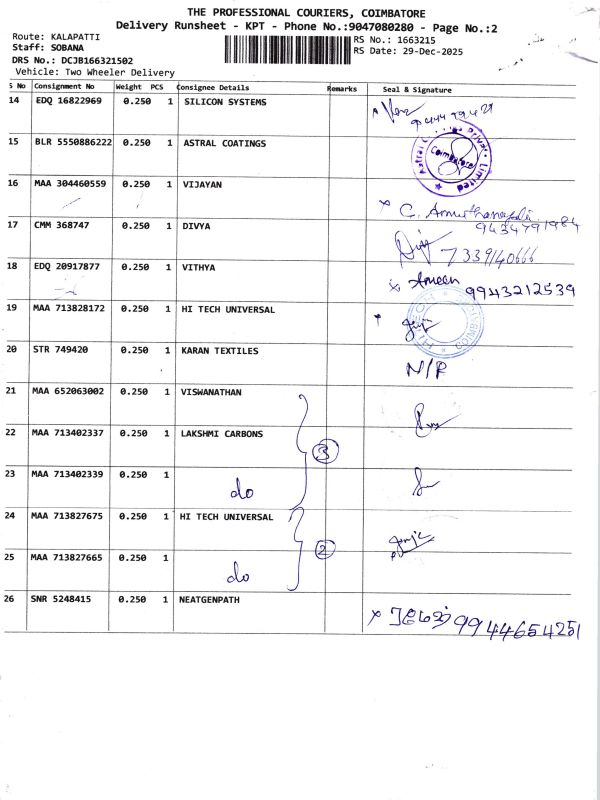 THE PROFESSIONAL COURIERS, COIMBATORE
Delivery Runsheet - KPT - Phone No.:9047080280 - Page No.:2
Route: KALAPATTI RS No.: 1663215
Staff: SOBANA RS Date: 29-Dec-2025
DRS No.: DCJB166321502
Vehicle: Two Wheeler Delivery
S No Consignment No Weight PCS Consignee Details Remarks Seal & Signature
14 EDQ 16822969 0.250 1 SILICON SYSTEMS
15 BLR 5550886222 0.250 1 ASTRAL COATINGS Coimbatore Private Limited
16 MAA 304460559 0.250 1 VIJAYAN
17 CMM 368747 0.250 1 DIVYA 9434791984
7339140666
18 EDQ 20917877 0.250 1 VITHYA Ameen 9943212539
19 MAA 713828172 0.250 1 HI TECH UNIVERSAL
20 STR 749420 0.250 1 KARAN TEXTILES N/P
21 MAA 652063002 0.250 1 VISWANATHAN
22 MAA 713402337 0.250 1 LAKSHMI CARBONS 3
23 MAA 713402339 0.250 1 do
24 MAA 713827675 0.250 1 HI TECH UNIVERSAL 2
25 MAA 713827665 0.250 1 do
26 SNR 5248415 0.250 1 NEATGENPATH 9944654251